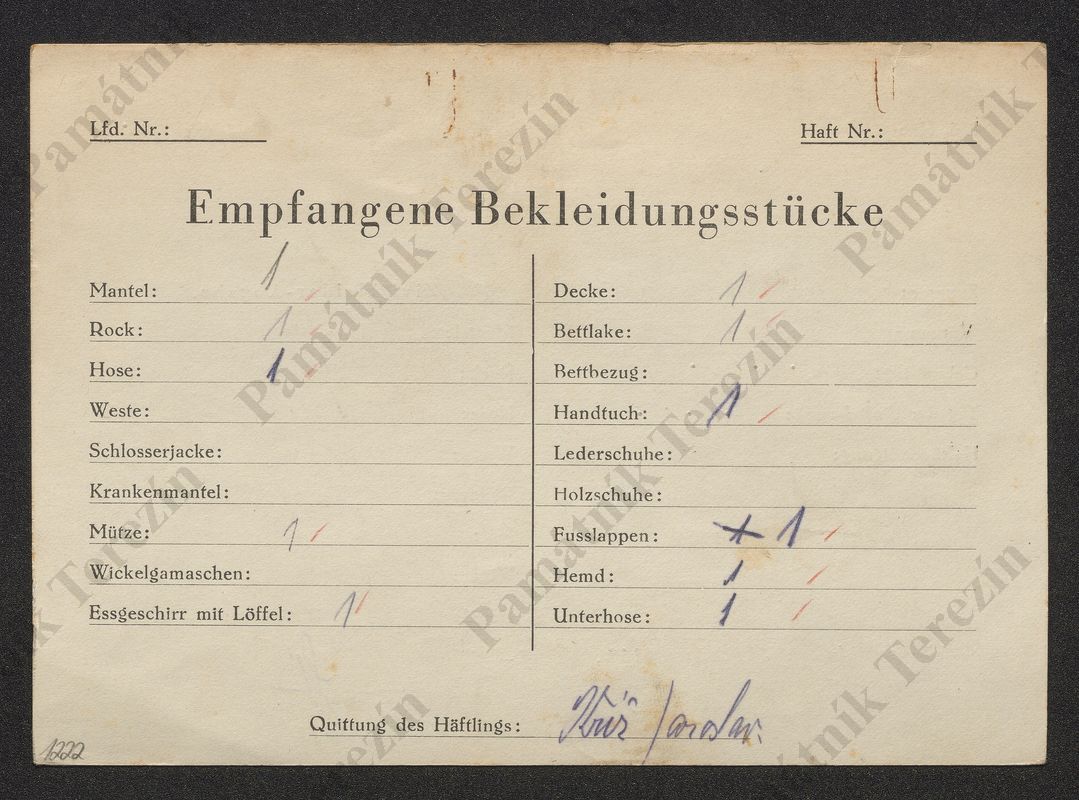 Lfd. Nr.:
Haft Nr.:
Empfangene Bekleidungsstücke
Mantel: 1
Rock: 1
Hose: 1
Weste:
Schlosserjacke:
Krankenmantel:
Mütze: 1
Wickelgamaschen:
Essgeschirr mit Löffel: 1
Decke: 1
Bettlake: 1
Bettbezug:
Handtuch: 1
Lederschuhe:
Holzschuhe:
Fusslappen: 1
Hemd: 1
Unterhose: 1
Quittung des Häftlings: Jaroslav
1222
Památník Terezín